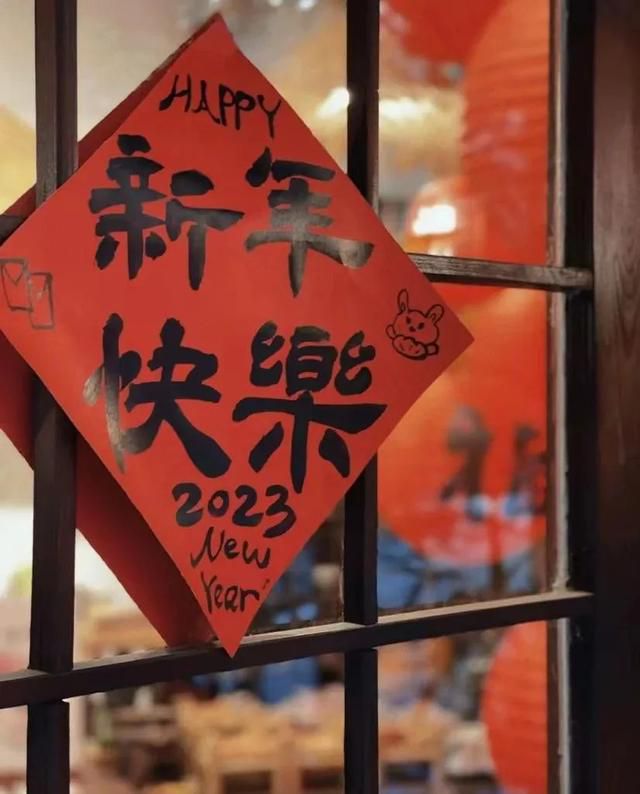 HAPPY
新年
快樂
2023
New
Year